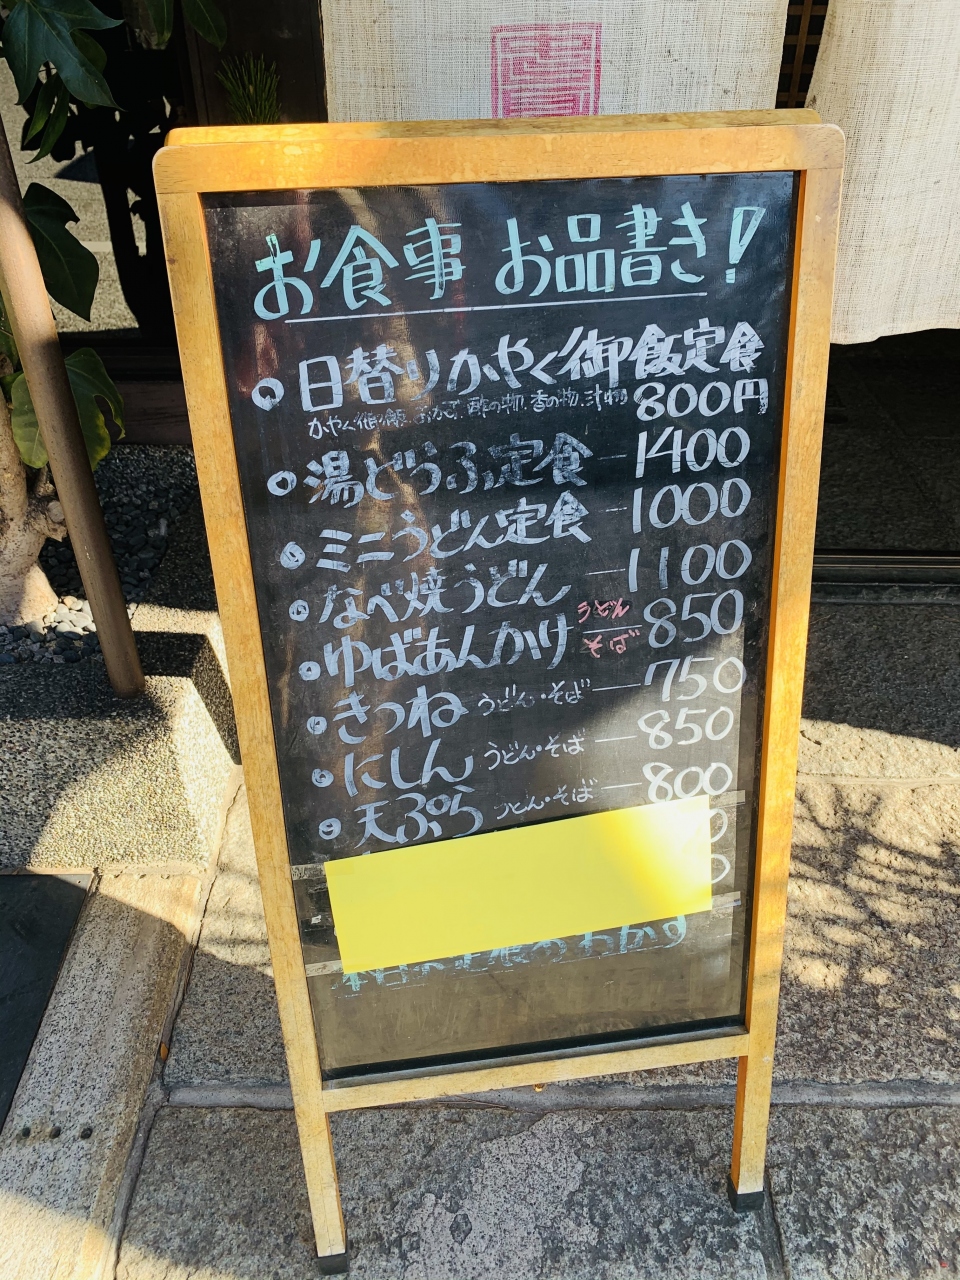 お食事 お品書き!
日替りかやく御飯定食
かやく御飯、おかず、酢の物、香の物、汁物 800円
湯どうふ定食 1400
ミニうどん定食 1000
なべ焼うどん 1100
ゆばあんかけ うどん そば 850
きつね うどん・そば 750
にしん うどん・そば 850
天ぷら うどん・そば 800
のおかず